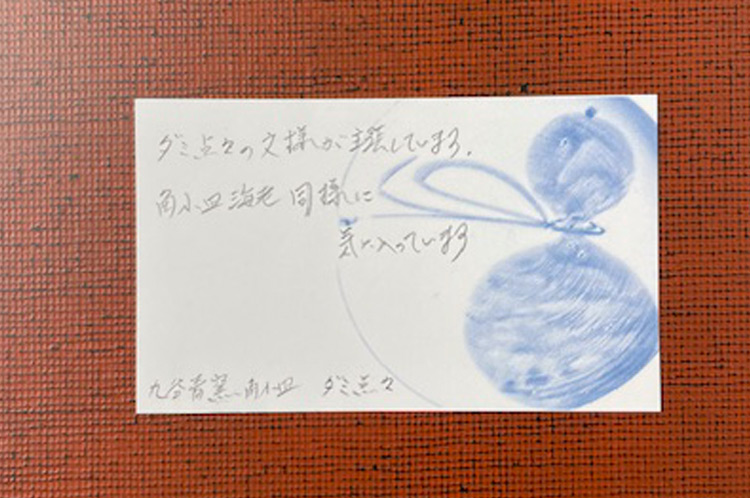 ダミ点々の文様が主張しています。
角小皿海老同様に
気に入っています
九谷青窯 角小皿 ダミ点々